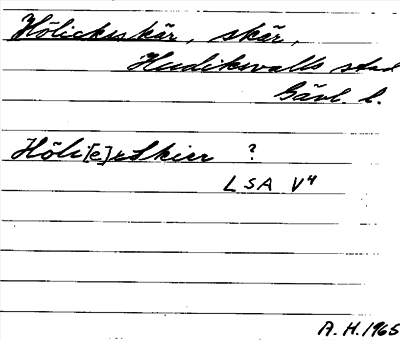 Hölicksskär, skär,
Hudiksvalls stad
Gävl. l.
Höli[e]xSkier ?
LSA V4
A. H. 1965